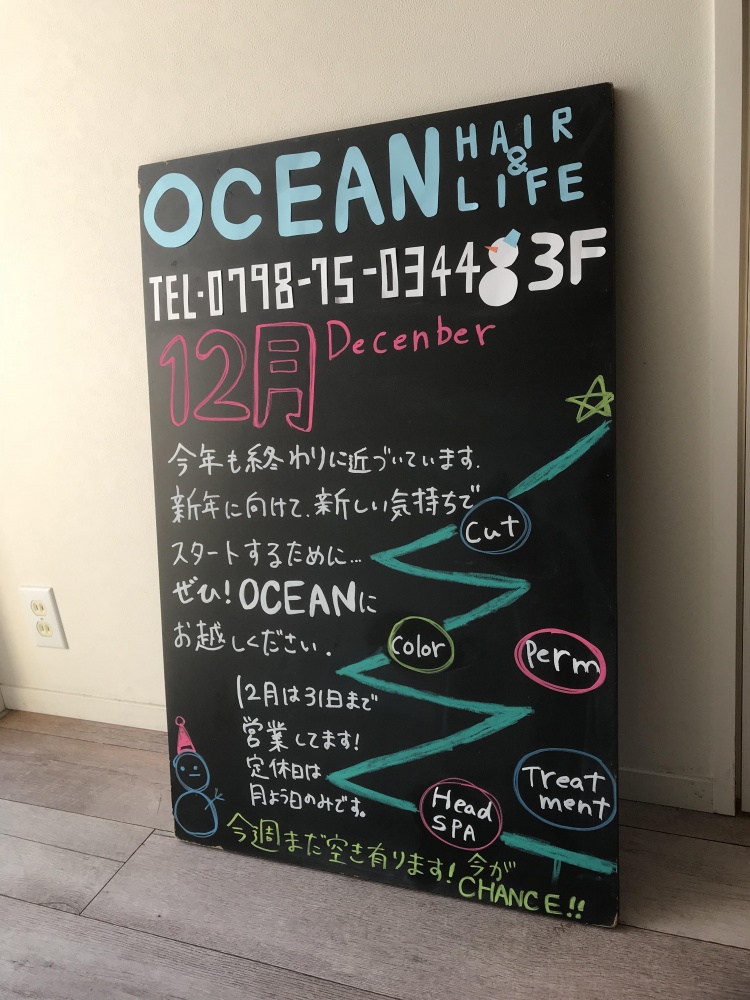 OCEAN HAIR & LIFE
TEL・0798-75-0344 3F
12月 Decenber
今年も終わりに近づいています.
新年に向けて、新しい気持ちで
スタートするために...
ぜひ!OCEANに
お越しください.
Cut
Color
Perm
12月は31日まで
営業してます!
定休日は
月よう日のみです。
Treat
ment
Head
SPA
今週まだ空き有ります!今が
CHANCE!!